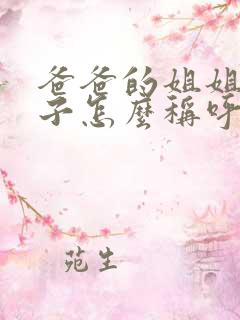 爸爸的姐姐
子怎麼稱呼
苑生